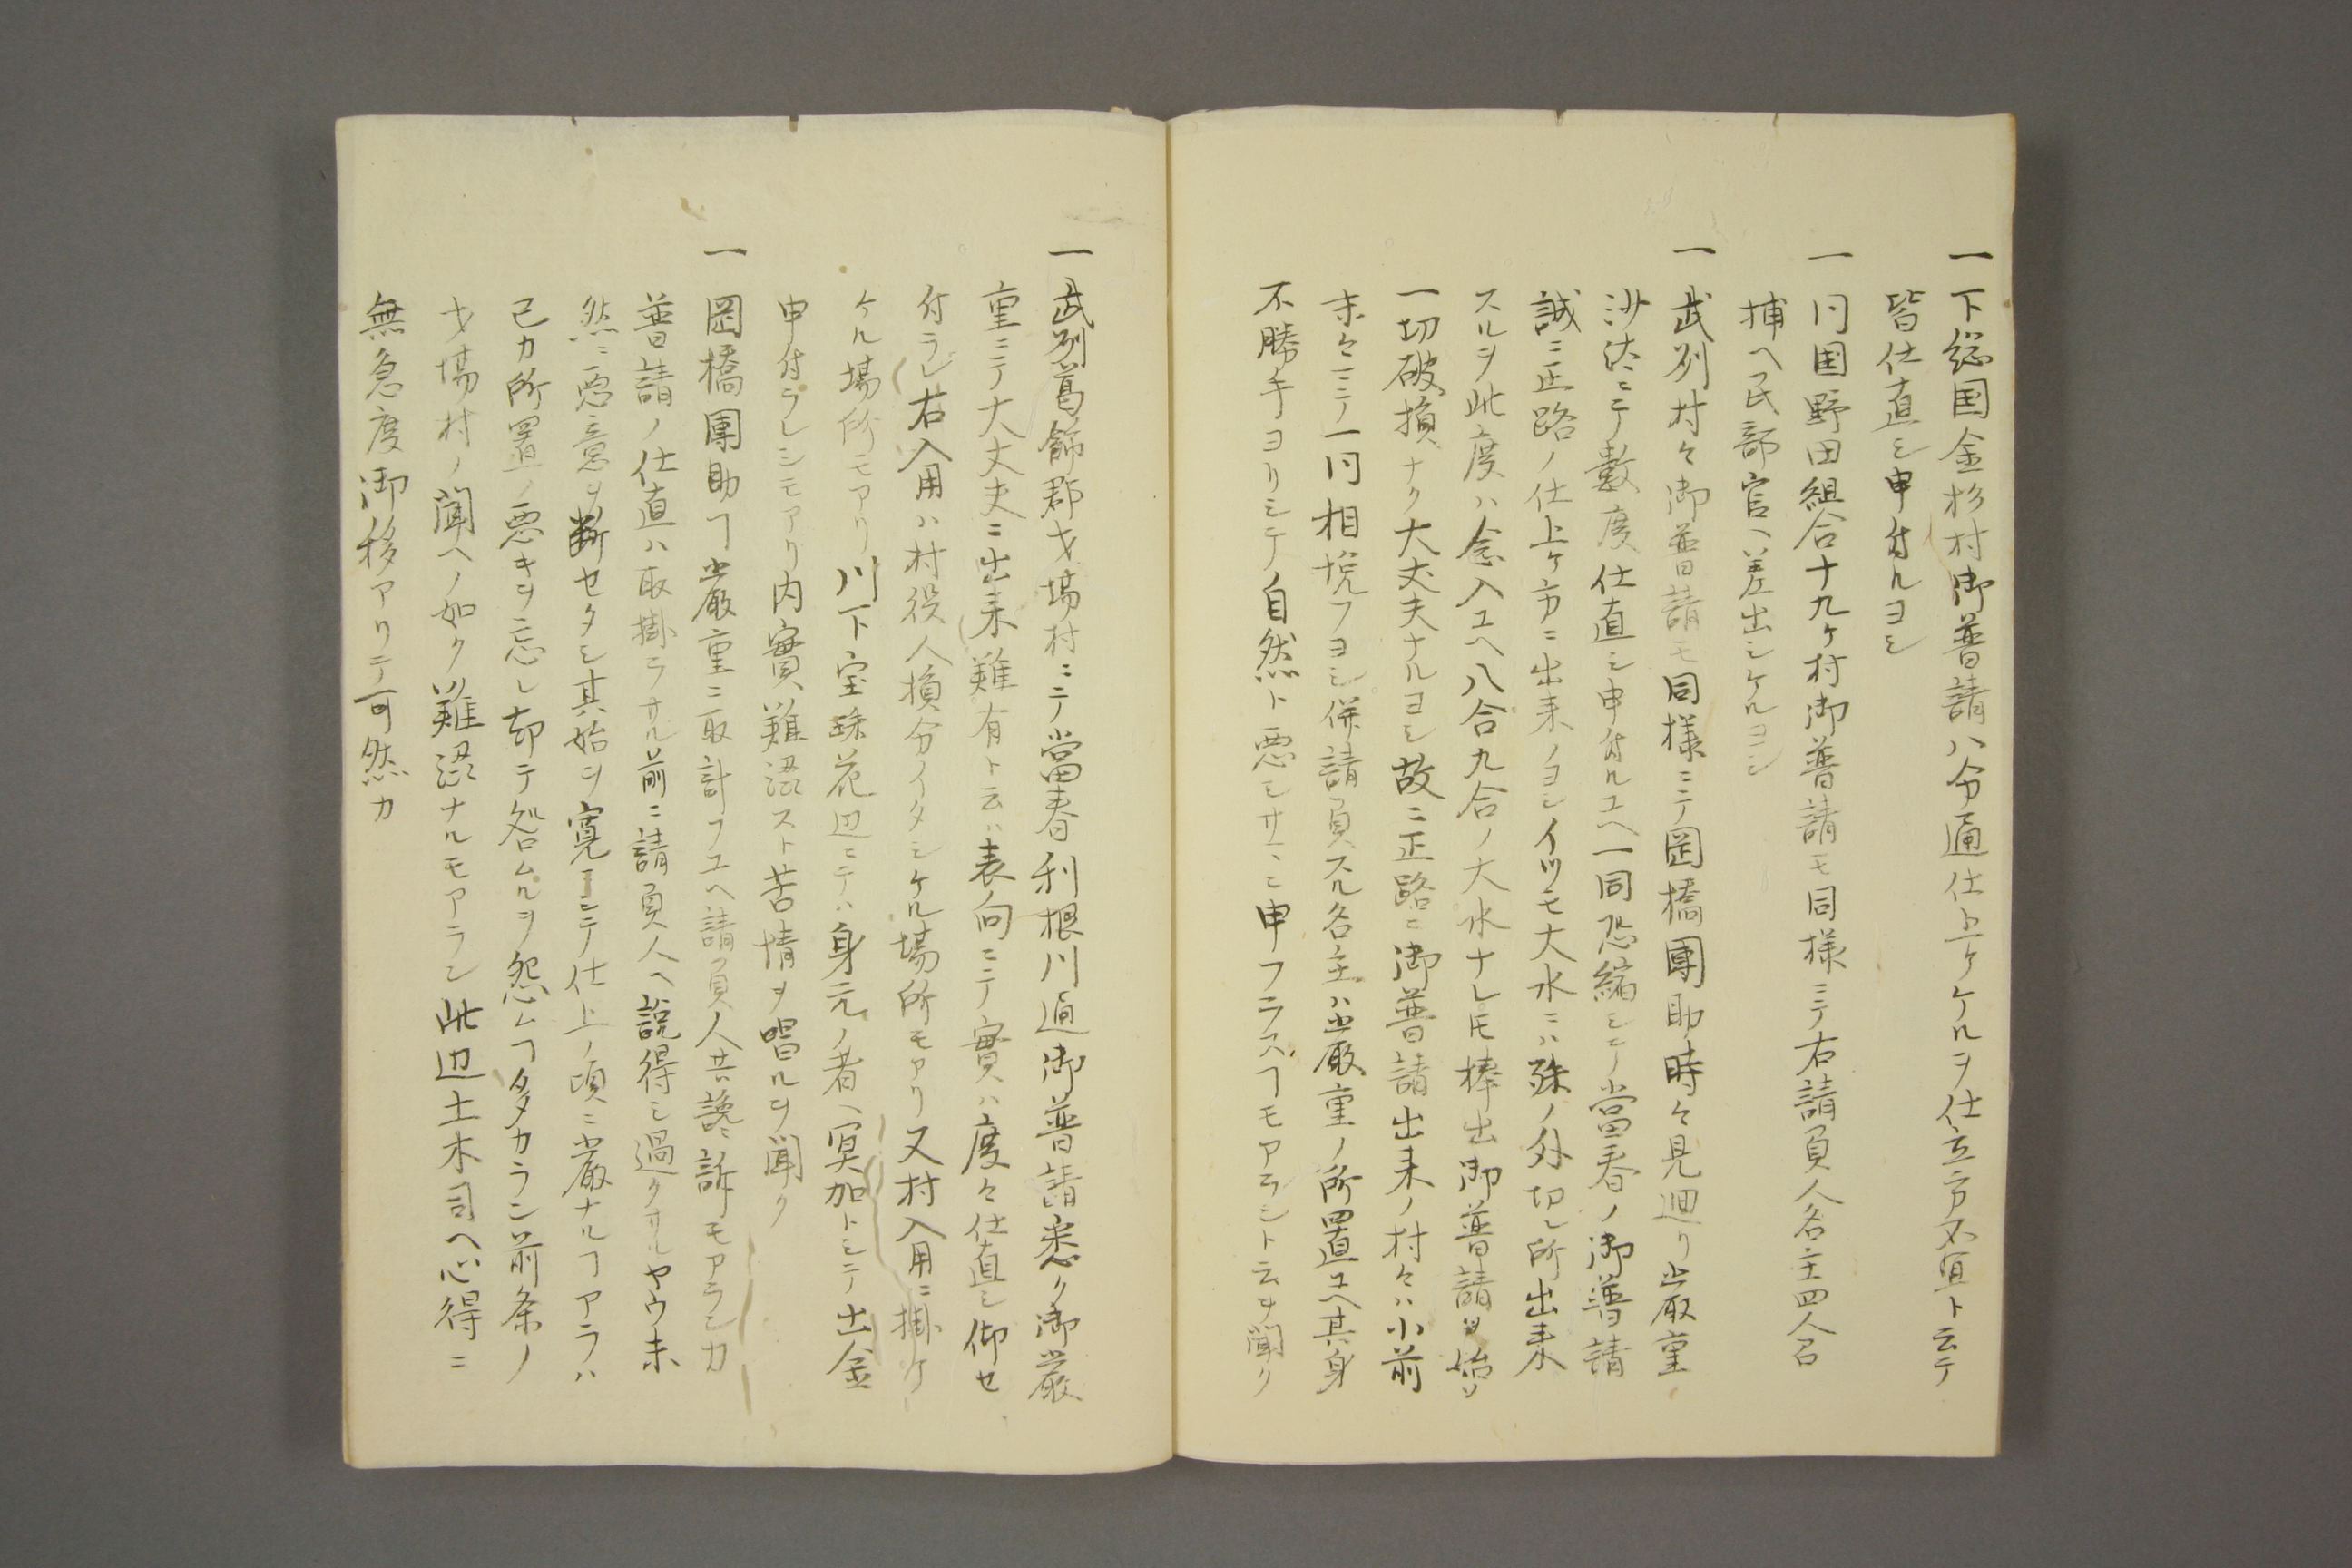 一下総国金杉村御普請ハ令通仕上ケケルヲ仕立方不宜ト云テ
皆仕直シ申付ルヨシ
一同国野田組合十九ケ村御普請モ同様ニテ右請負人名主四人召
捕ヘ民部官ヘ差出シケルヨシ
一武列村々御普請モ同様ニテ岡橋團助時々見廻リ嚴重
沙汰ニテ數度仕直シ申付ルユヘ一同恐縮シテ當春ノ御普請
誠ニ正路ノ仕上ケ方ニ出来ノヨシイツモ大水ニハ殊ノ外切レ所出来
スルヲ此度ハ念入ユヘ八合九合ノ大水ナレ𪜈棒出御普請ヲ始
一切破損ナク大丈夫ナルヨシ故ニ正路ニ御普請出来ノ村々ハ小前
末々ニテ一同相悦フヨシ併請負スル名主ハ嚴重ノ所置ユヘ其身
不勝手ヨリシテ自然ト悪シサマニ申フラスヿモアラント云ヲ聞ク
一武列葛飾郡才場村ニテ當春利根川通御普請悉ク御嚴
重ニテ大丈夫ニ出来難有ト云ハ表向ニテ實ハ度々仕直シ仰セ
付ラレ右入用ハ村役人損分イタシケル場所モアリ又村入用ニ掛ケ
ケル場所モアリ川下宝珠花辺ニテハ身元ノ者ヘ冥加トシテ出金
申付ラレシモアリ内實難澁スト苦情ヲ唱ルヲ聞ク
一岡橋團助ヿ嚴重ニ取計フユヘ請負人共讒訴モアランカ
普請ノ仕直ハ取掛ラサル前ニ請負人ヘ説得シ過クサルヤウ未
然ニ悪意ヲ断セタシ其始ヲ寛ニシテ仕上ノ頃ニ嚴ナルヿアラハ
己カ所置ノ悪キヲ忘レ却テ咎ムルヲ怨ムヿ多カラン前条ノ
才場村ノ聞ヘノ如ク難澁ナルモアラン此辺土木司ヘ心得ニ
無急度御移アリテ可然カ